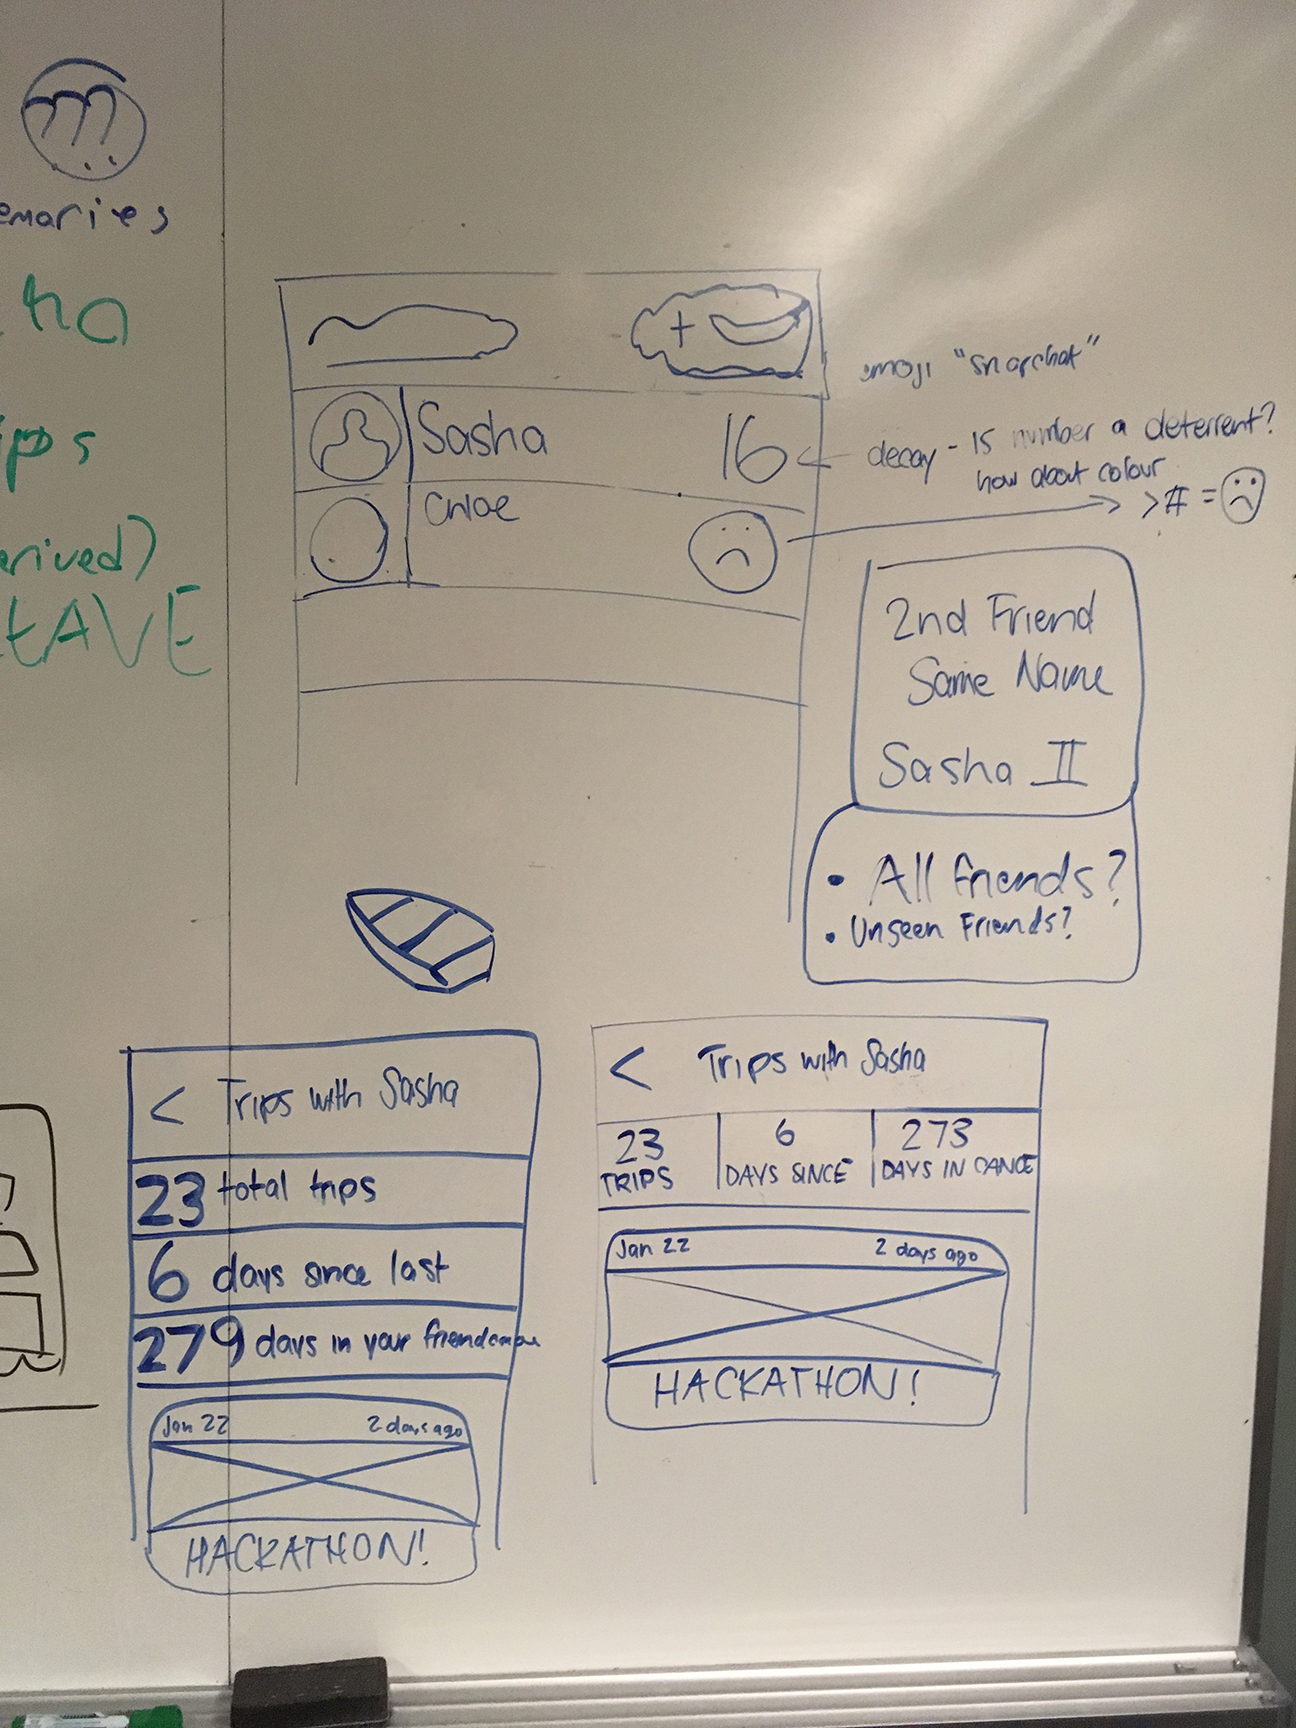 emories
ha
ips
erived)
tAVE
+
emoji "snapchat"
Sasha 16
decay - is number a deterrent?
how about colour
> # =
Chloe
2nd Friend
Same Name
Sasha II
• All friends?
• Unseen Friends?
< Trips with Sasha
23 total trips
6 days since last
279 days in your friendcanoe
Jan 22 2 days ago
HACKATHON!
< Trips with Sasha
23
TRIPS
6
DAYS SINCE
273
DAYS IN CANOE
Jan 22 2 days ago
HACKATHON!